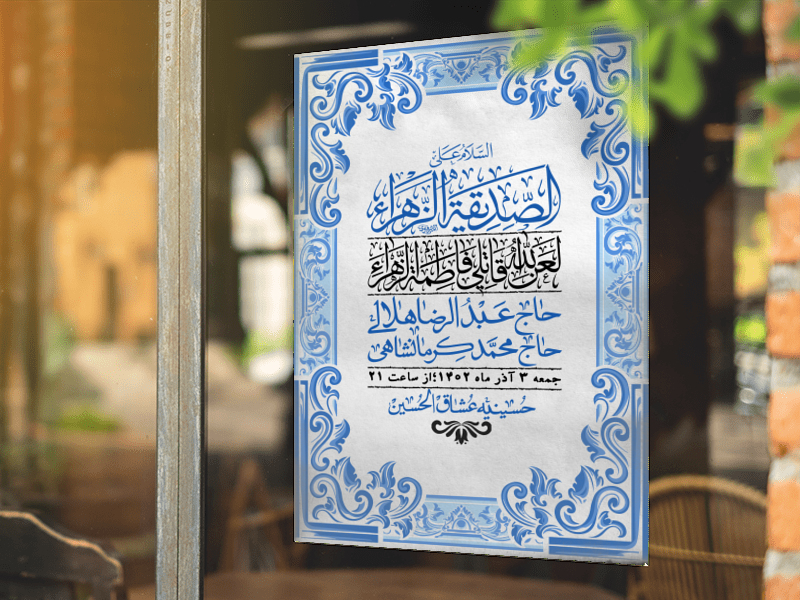 السلام علی
الصدیقة الزهراء
لعن الله قاتلي فاطمة الزهراء
حاج عبدالرضا هلالی
حاج محمد کرمانشاهی
جمعه ۳ آذر ماه ۱۴۰۲؛از ساعت ۲۱
حسینیه عشاق الحسین